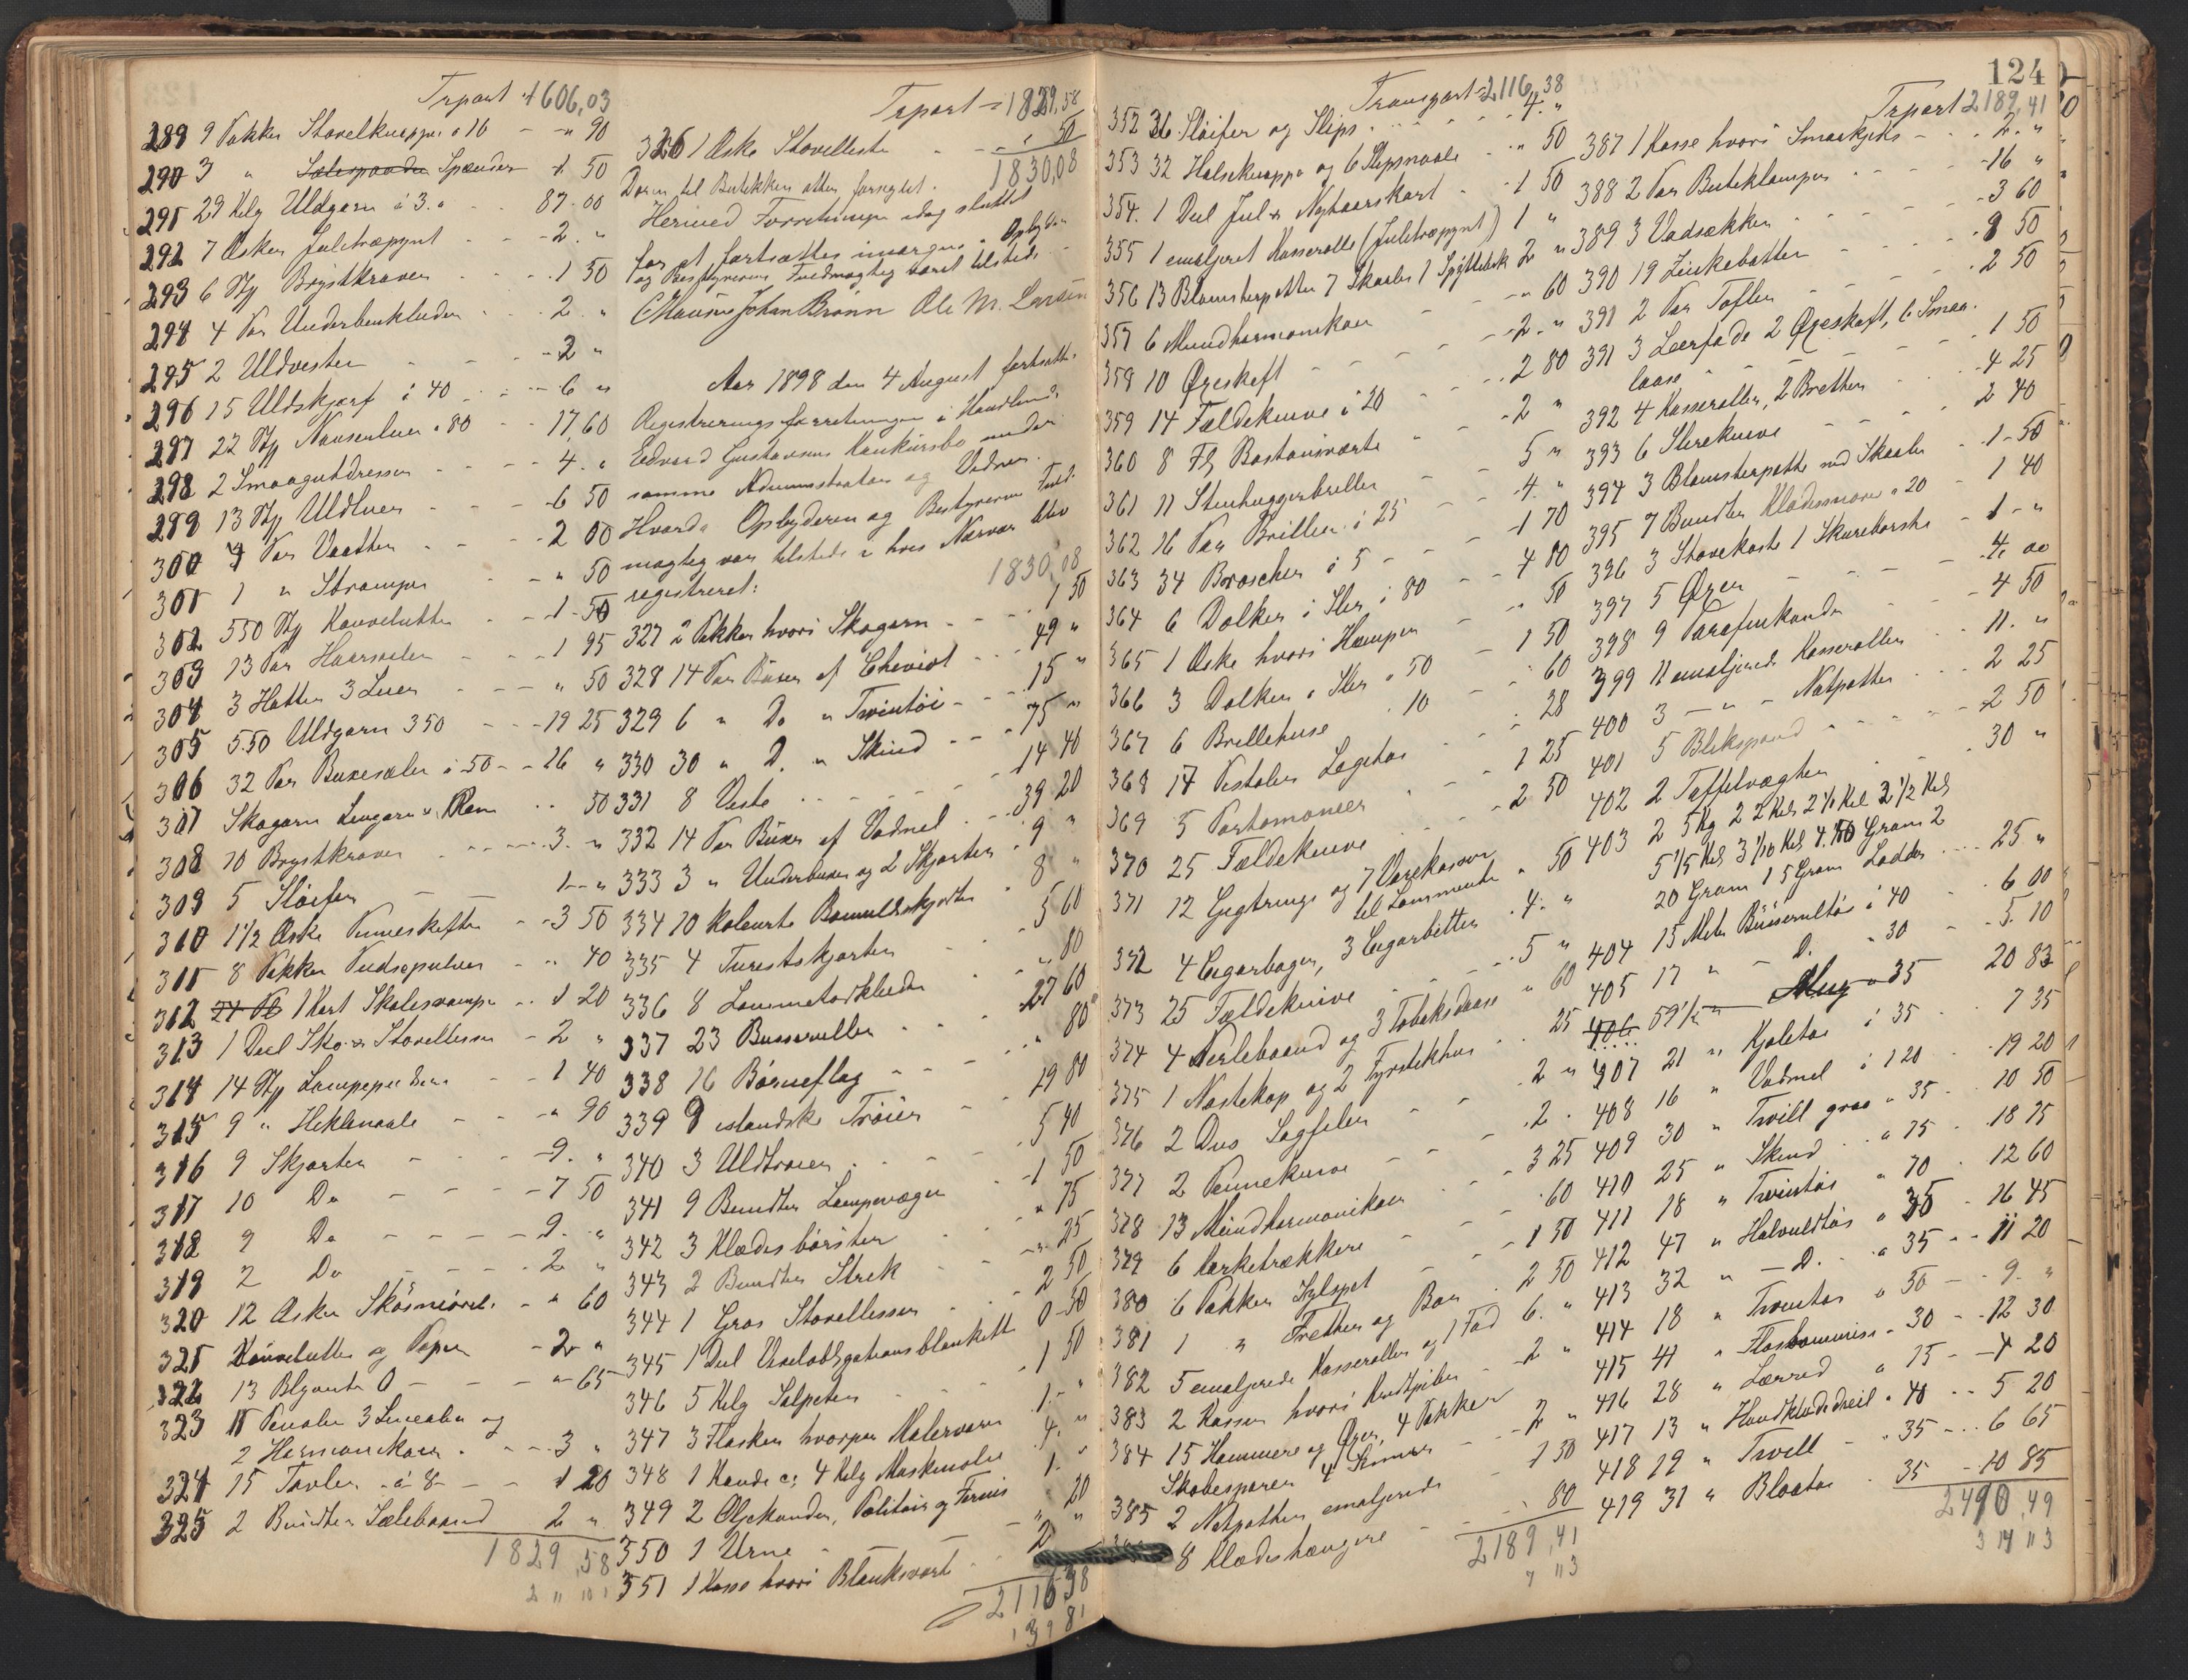 Trport 1606,03
289 9 Pakker Støvelknapper a 16 - - " 90
290 3 " Spænder - 1 50
291 29 Kilg Uldgarn à 3. " - - 87.00
292 7 Æsker Juletræpynt - - - 2. "
293 6 Stk Brystkraver - - - 1 50
294 4 Par Underbenklæder - - 2. "
295 2 Uldveste - - - 2 "
296 15 Uldskjærf à 40 - - - 6 "
297 22 Stk Nansenluer a 80 - - 17,60
298 2 Smaagutdresser - - - 4. "
299 13 Stk Uldluer - - - 6 50
300 Par Vaatter - - - 2 00
301 1 " Strømper - - - " 50
302 550 Stk Konvolutter - - 1-50
303 13 Par Haarnaaler - - - 1 95
304 3 Hatter 3 Luer - - - " 50
305 5.50 Uldgarn 350 - - - 19 25
306 32 Par Buxeseler à 50 - - 16 "
307 Skogarn Lingarn - - 50
308 10 Brystkraver - - - 3. "
309 5 Sløifer - - 1 - "
310 1 1/2 Æske Penneskefter - - 3 50
311 8 Pakker Pudsepulver - - " 40
312 1 Kart - - 1 20
313 1 Deel Sko & Støvellisser - 2 "
314 14 Stk - - 1 40
315 9 " Heklenaale - - - " 90
316 9 Skjorter - - - 9. "
317 10 Do - - - 7 50
318 9 Do - - - 9. "
319 2 Do - - - 2 "
320 12 Æsker Skosmørelse - " 60
321 Konvolutter og Papir - 2 "
322 13 Blyanter O - - - " 65
323 Penaler 3 Linealer og
2 Harmonikaer - - - 3 "
324 15 Tavler - à 8 - - 1 20
325 2 Bundter Sælebaand 2 "
1829,58
Trport = 1829,58
326 1 Æske Støvelleste - - - " 50
1830,08
Døren til Butikken atter forseglet.
Hermed Forretningen idag sluttet
for at fortsættes imorgen. Opbyder
og Bestyrerens Fuldmægtig været tilstede.
Johan Brønn Ole M. Larsen
Aar 1898 den 4 August fortsattes
Registreringsforretningen i Handlende
Edvard Gustavsens Konkursbo under
samme Administrator og Vidner.
Hvorda Opbyderen og Bestyrerens Fuld-
mægtig var tilstede i hvis Nærvær blev
registreret: 1830,08
327 2 Pakker hvori Skogarn - - - 1 50
328 14 Par Buxer af Cheviot - - - 49 "
329 6 " Do " Twintöi - - - 15 "
330 30 " D. " Skind - - - 75 "
331 8 Veste - - - - 14 40
332 14 Par Buxer af Vadmel - - 39 20
333 3 " Underbuxer og 2 Skjorter - 9 "
334 10 kolørte Bomuldsskjorter - 8 "
335 4 Turistskjorter - - - 5 60
336 8 Lommetørklæder - - - " 80
337 23 Busseruller - - - 27 60
338 16 Børneflag - - - " 80
339 9 islandske Trøier - - 19 80
340 3 Uldtrøier - - - 5 40
341 9 Bundter Lampevæger - - 1 50
342 3 Klædesbørster - - " 75
343 2 Bundter Strik - - " 25
344 1 Gros Støvellisser - - 2 50
345 1 Deel Vexelobligationsblanketter 0-50
346 5 Kilg Salpeter - - - 1 50
347 3 Flasker hvorpaa Malervarer 1. "
348 1 Kande ca 4 Kilg Maskinolie 4. "
349 2 Oljekander, Politur og Fernis 1. "
350 1 Urne - - - " 20
351 1 Kasse hvori Blanksværte - - 2 "
2116 38
124
Transport = 2116,38
352 36 Sløifer og Slips - - - 4. "
353 32 Halseknapper og 6 Slipsnaale - - " 50
354. 1 Deel Jul & Nytaarskort - 1 50
355 1 emaljeret Kasserolle (Juletræpynt) 1 "
356 13 Blomsterpotter 7 Skaaler 1 Spyttebak 2 "
357 6 Mundharmonikaer - - " 60
358 10 Øxeskeft - - - 2. "
359 14 Foldeknive à 20 - - 2 80
360 8 Fl Bostonsværte - - 2 "
361 11 Stenhuggerbriller - - 5 "
362 16 Par Briller à 25 - - 4. "
363 34 Broscher à 5 - - - 1 70
364 6 Dolker i Slir à 80 - - 4 80
365 1 Æske hvori Hamper - " 50
366 3 Dolker i Slir a 50 - 1 50
367 6 Brillehuse " 10 - " 60
368 14 Pistoler Legetøi - - " 28
369 5 Portomonæer - - 1 25
370 25 Foldeknive - - - 2 50
371 12 Gigtringe og 7 Urkasser
til Lommeuhr " 50
372 4 Cigarbøger, 3 Cigarbitter - 4. "
373 25 Foldeknive - - - 5 "
374 4 Perlebaand og 3 Tobaksdaase " 60
375 1 Nøstekop og 2 Fyrstikhus - " 25
376 2 Dus Sagfiler - - 2 "
377 2 Penneknive - - 2 "
378 13 Mundharmonikaer - - 3 25
379 6 Korketrækkere - - " 60
380 6 Pakker Sylspet - - 1 50
381 1 " Tretten og Bor - 2 50
382 5 emaljerede Kasseroller og 1 Fad 6. "
383 2 Kasser hvori - 2 "
384 15 Hammere og Øxer, 4 Pakker
Skobesparer - 2 "
385 2 Natpotter emaljerede - 1 50
8 Klædeshængere - - " 80
2189,41
Trport 2189,41
387 1 Kasse hvori Smaakjeks - - 2. "
388 2 Par Butiklamper - - - 16 "
389 3 Vadsækker - - - 3 60
390 19 Zinkebøtter - - - 8 50
391 2 Par Tøfler - - - 2 50
391 3 Leerfade 2 Øxeskaft, 6 Smaa-
laase - - - 1 50
392 4 Kasseroller, 2 Bretter - - 4 25
393 6 Slireknive - - - 2 40
394 3 Blomsterpotter med Skaaler - 1-50
395 7 Bundter Klædesnore a 20 - 1 40
396 3 Stovekoste 1 Skurebørste - 1 - "
397 5 Øxer - - - 4. 00
398 9 Parafinkander - - - 4 50
399 11 emaljerede Kasseroller - - 11. "
400 3 - " - Natpotter - - 2 25
401 5 Blikspand - - - 2 50
402 2 Taffelvægter - - - 30 "
403 2 5 Kg 2 2 Kil 2 1/1 Kil 2 1/2 Kil
5 1/5 Kil 3 1/10 Kil 4. 50 Gram 2
20 Gram 1 5 Gram Lodder - - 25 "
404 15 Meter Busserultøi à 40 - 6 00
405 17 " - D. " 30 - - 5. 10
406 59 1/2 " " 35 20 83
407 21 " Kjoletøi à 35 - - 7 35
408 16 " Vadmel à 120 - - 19 20
409 30 " Twill graa " 35 - 10 50
410 25 " Skind - - a 75 - 18 75
411 18 " Twintøi " 70 - 12 60
412 47 " Halvuldtøi " 35 - 16 45
413 32 " - D. - " 35 - - 11 20
414 18 " Twintøi a 50 - - 9. "
415 41 " " 30 - - 12 30
416 28 " Lærred " 15 - - 4 20
417 13 " Haandklædedreil " 40 - - 5 20
418 19 " Twill - " 35 - - 6 65
419 31 " Blaatøi - 35 - 10 85
2490,49